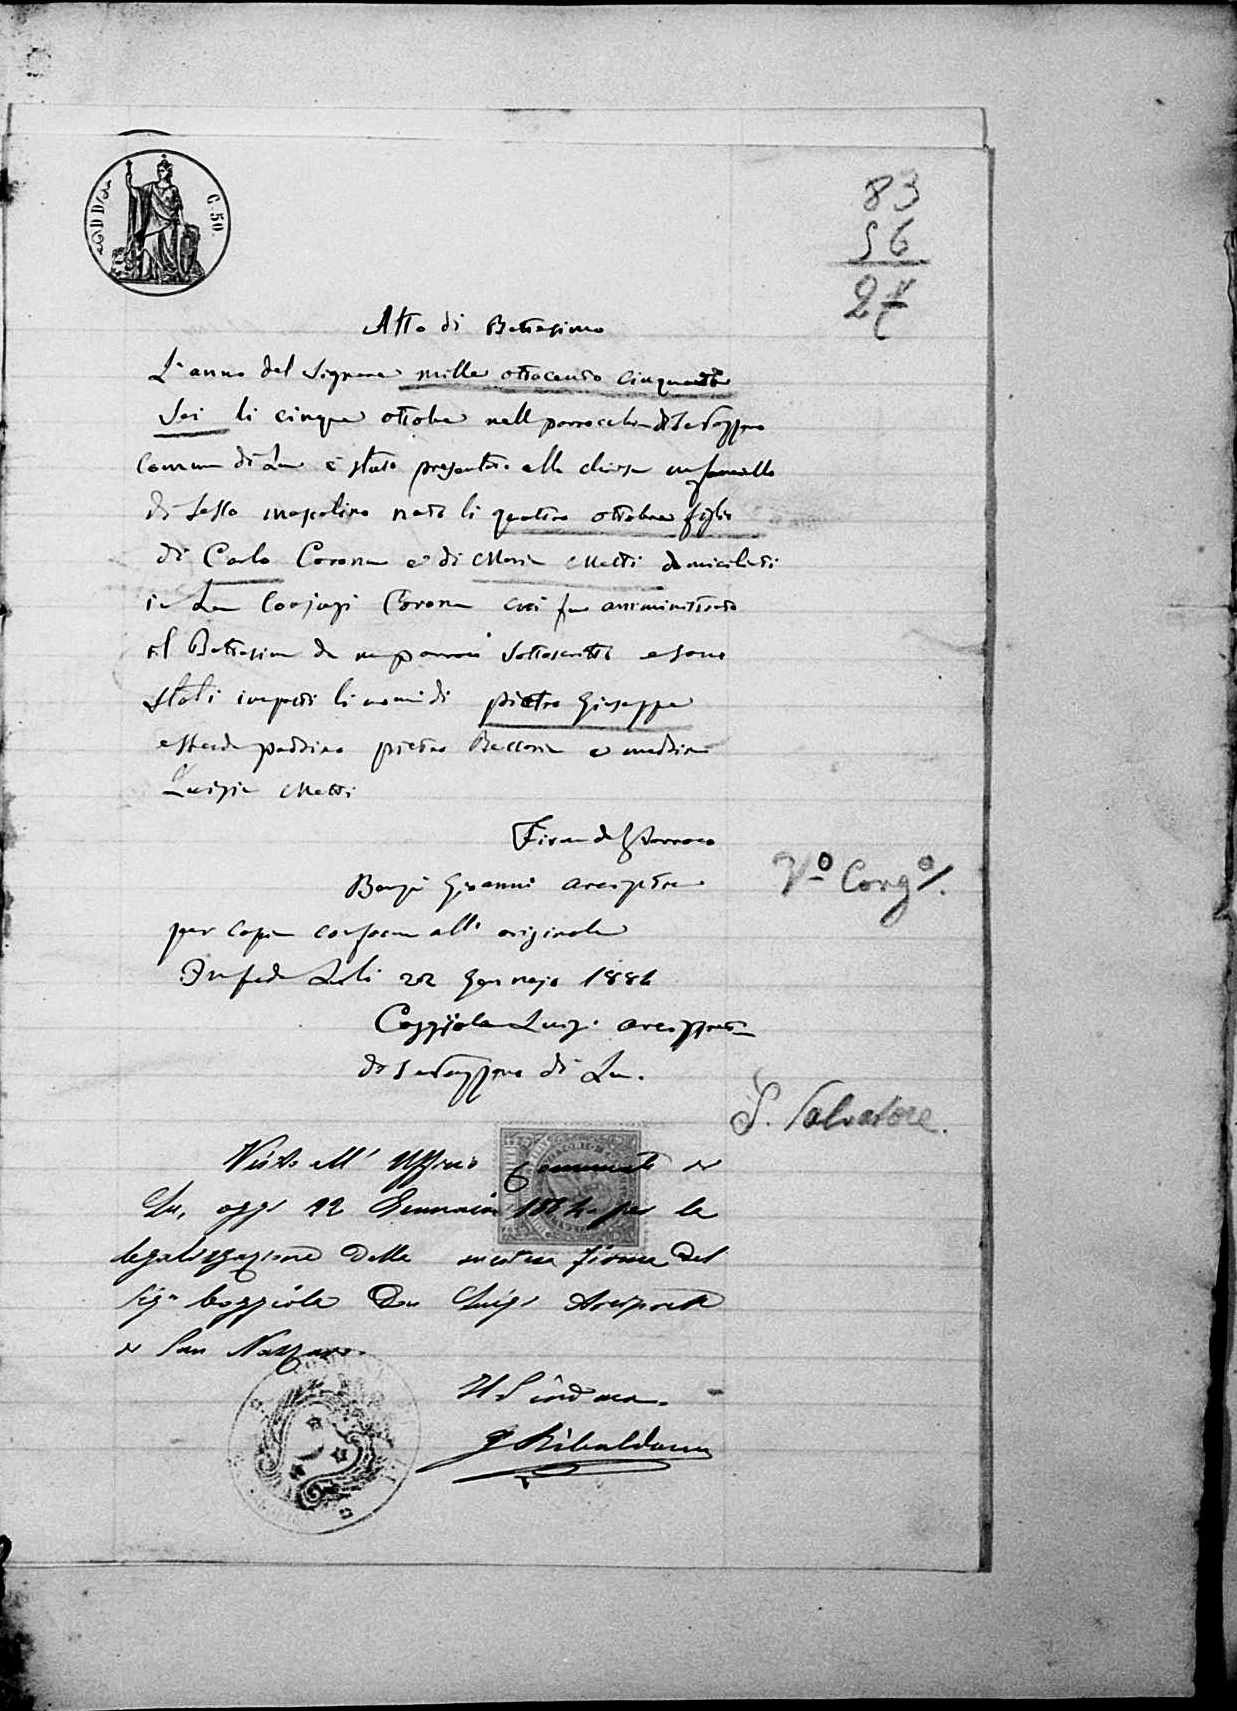 C. 50.
83
56
27
Atto di Battesimo
L'anno del Signore mille ottocento cinquanta
sei li cinque ottobre nell parrocchia di S Nazzaro
Comune di Lu è stato presentato alla chiesa un fanciullo
di sesso mascolino nato li quattro ottobre figlio
di Carlo Corona e di Maria Matti domiciliati
in Lu Conjugi Corona cui fu amministrato
il Battesimo da me parroco sottoscritto e sono
stati imposti li nomi di pietro Giuseppe
essendo paddino pietro e maddina
Luigia Matti
Firma del Parroco
Giovanni arciprete
per copia conforme all' originale
In fede Lu li 22 Gennajo 1884
Coggiola Luigi arciprete
di S Nazzaro di Lu.
Vº Congº/.
S. Salvatore.
Visto all' Uffizio Comunale di
Lu, oggi 22 Gennaio 1884 per la
legalizzazione della firma del
Sigr Coggiola Don Luigi Arciprete
di San Nazzaro.
Il Sindaco.
G Ribaldone